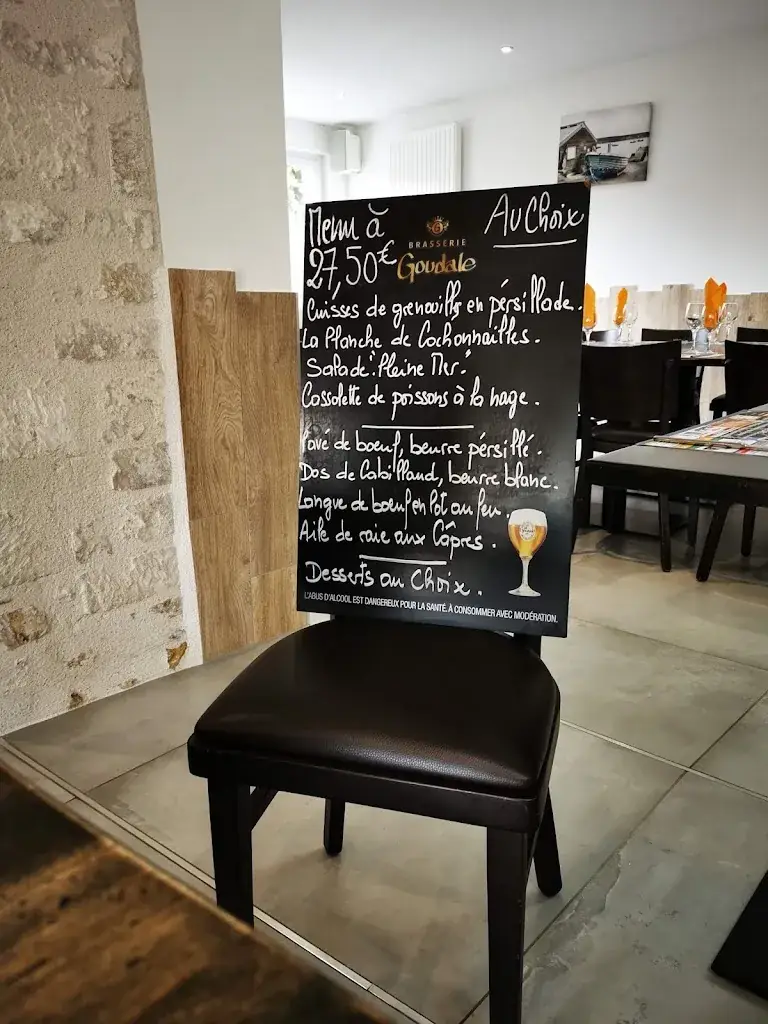 Menu à
27,50€
BRASSERIE
Goudale
Au Choix
Cuisses de grenouilles en pérsillade.
La Planche de Cochonnailles.
Salade "Pleine Mer."
Cassolette de poissons à la nage.
Pavé de boeuf, beurre pérsillé.
Dos de Cabillaud, beurre blanc.
Langue de boeuf en Pot au feu.
Aile de raie aux Câpres.
Desserts au Choix.
L'ABUS D'ALCOOL EST DANGEREUX POUR LA SANTÉ. À CONSOMMER AVEC MODÉRATION.